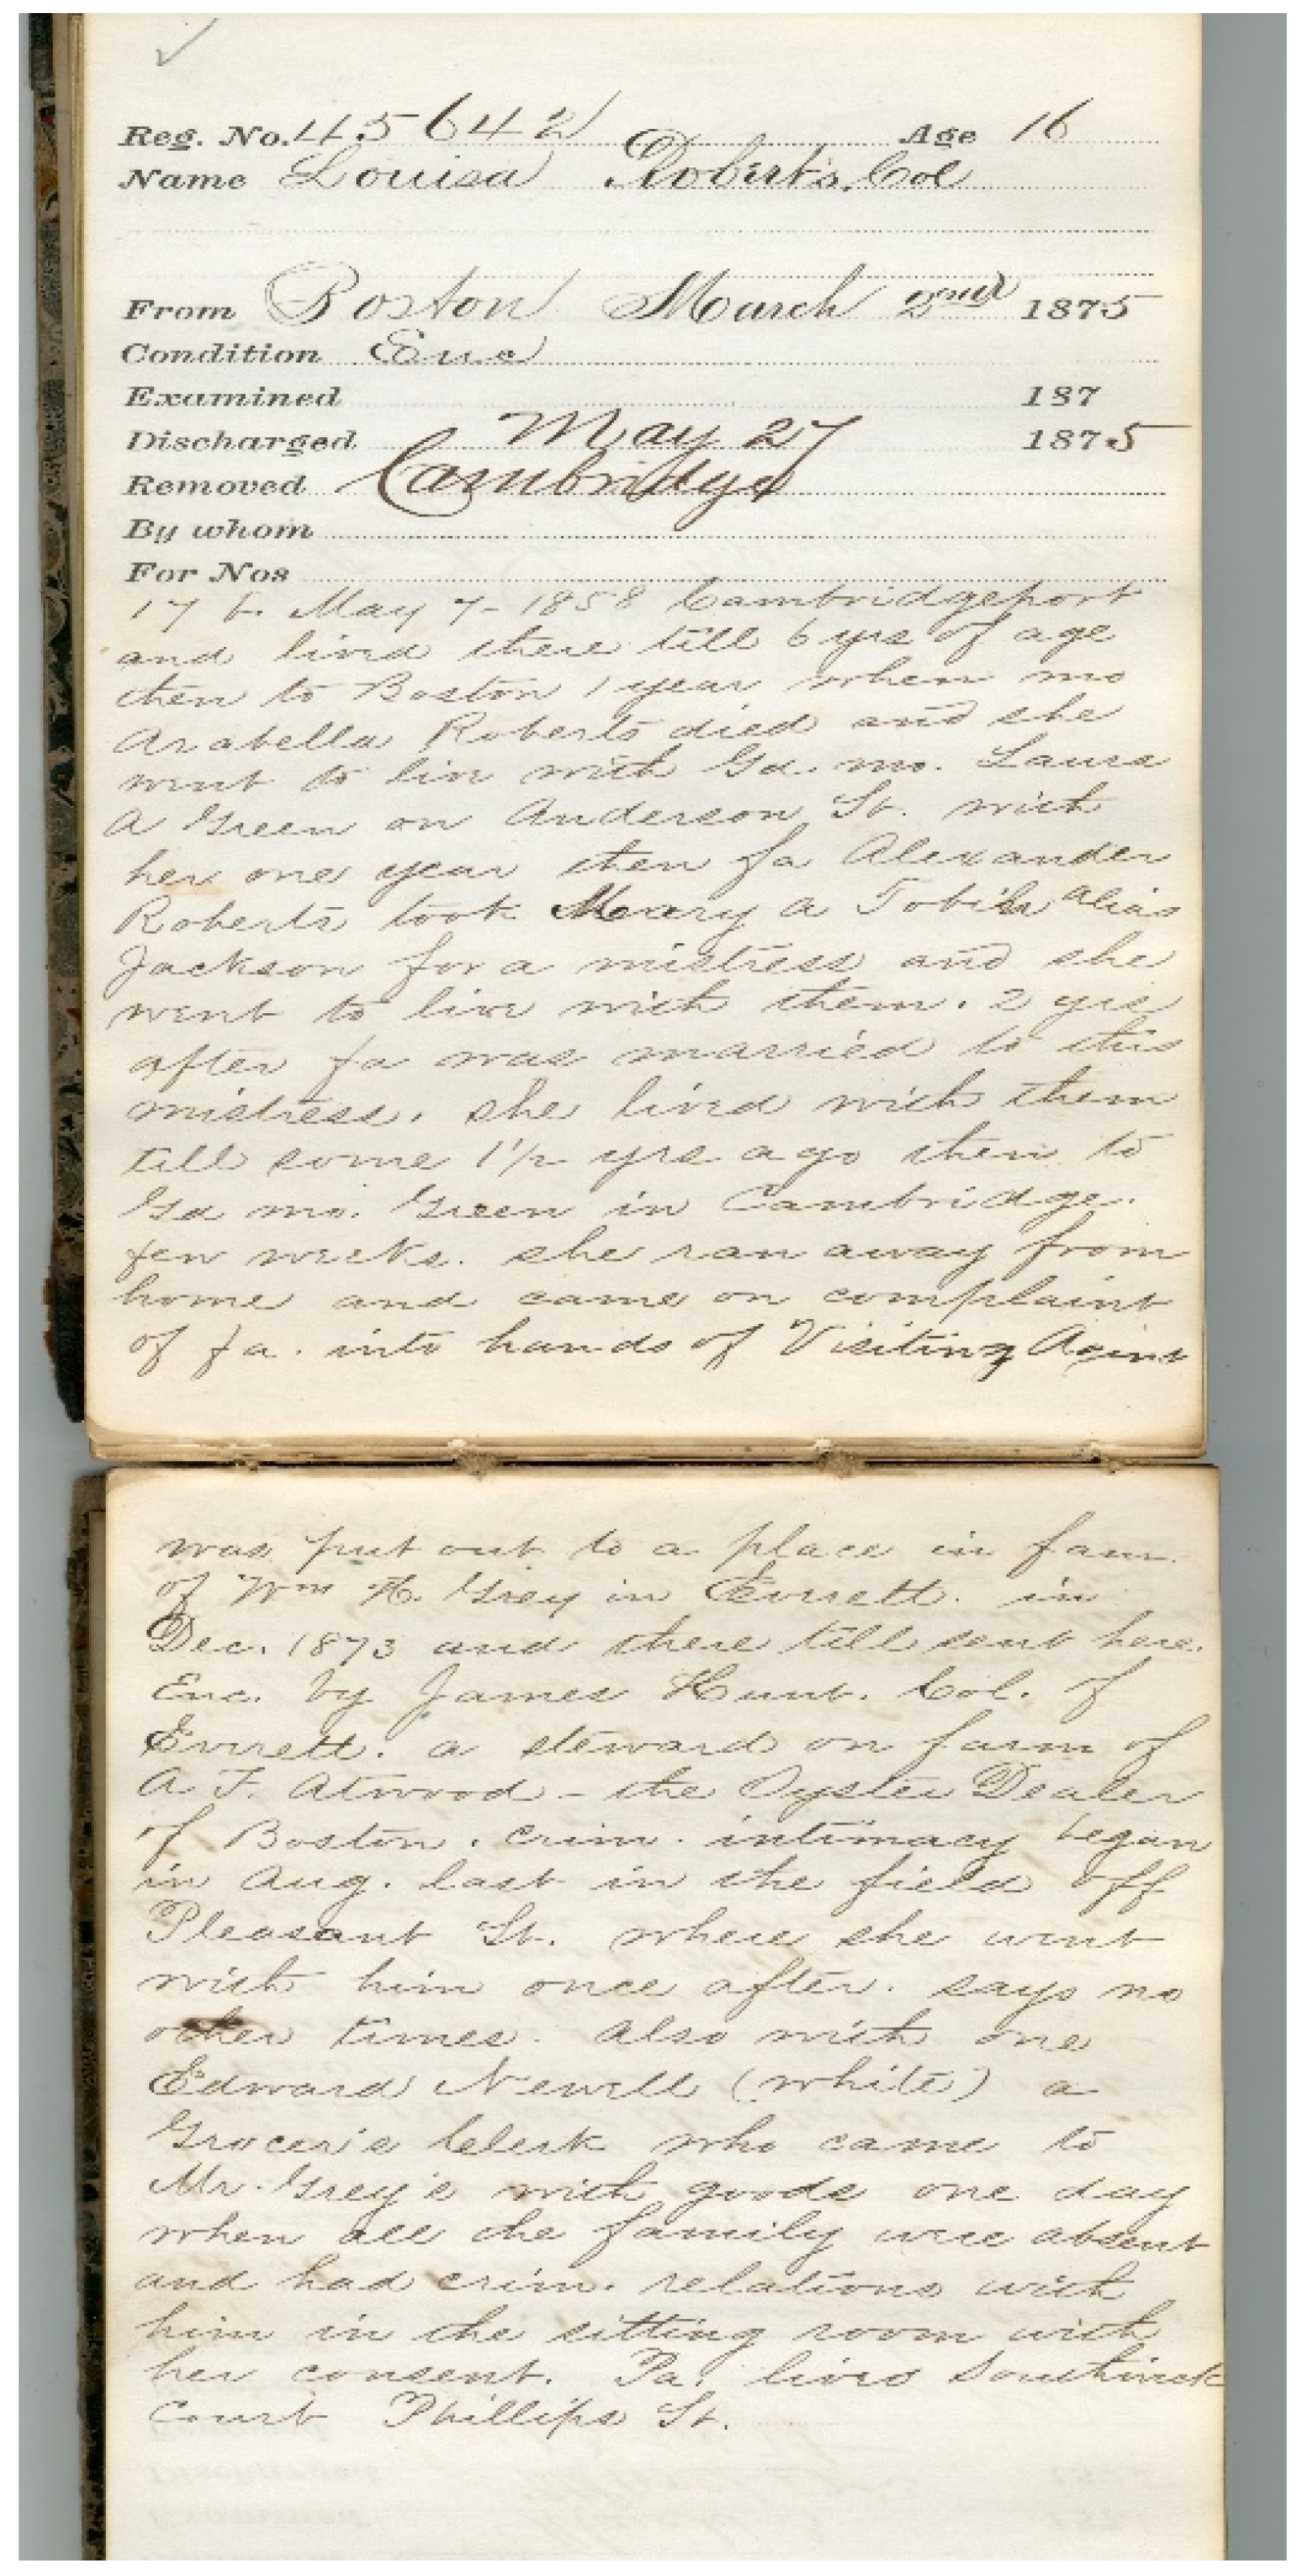 Reg. No. 45642 Age 16
Name Louisa Roberts. Col
From Boston March 2nd 1875
Condition Enc
Examined 187
Discharged May 27 1875
Removed Cambridge
By whom
For Nos
17 b. May 7 - 1858 Cambridgeport
and lived there till 6 yrs of age
then to Boston 1 year when mo
Arabella Roberts died and she
went to live with Gd. mo. Laura
A Green on Anderson St. with
her one year then fa Alexander
Roberts took Mary A alias
Jackson for a mistress and she
went to live with them. 2 yrs
after fa was married to this
mistress. she lived with them
till some 1 1/2 yrs ago then to
Gd mo. Green in Cambridge.
few weeks. she ran away from
home and came on complaint
of fa. into hands of Visiting Agent
was put out to a place in fam.
of Wm H. Grey in Everett. in
Dec. 1873 and there till sent here.
Enc. by James Hunt. Col. of
Everett. a steward on farm of
A F. Atwood - the Oyster Dealer
of Boston. crim. intimacy began
in Aug. last in the field off
Pleasant St. where she went
with him once after. says no
other times. Also with one
Edward Newell (white) a
Grocer's Clerk who came to
Mr. Grey's with goods one day
when all the family were absent
and had crim. relations with
him in the sitting room with
her consent. Fa. lives Southwick
Court Phillips St.